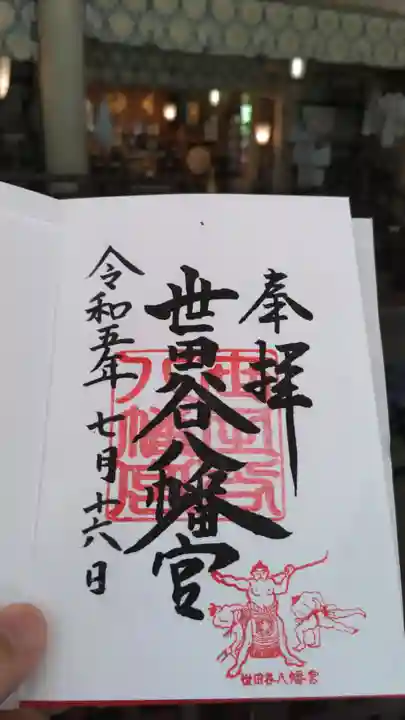 奉拝
世田谷八幡宮
令和五年七月廿六日
世田谷
八幡宮
世田谷八幡宮